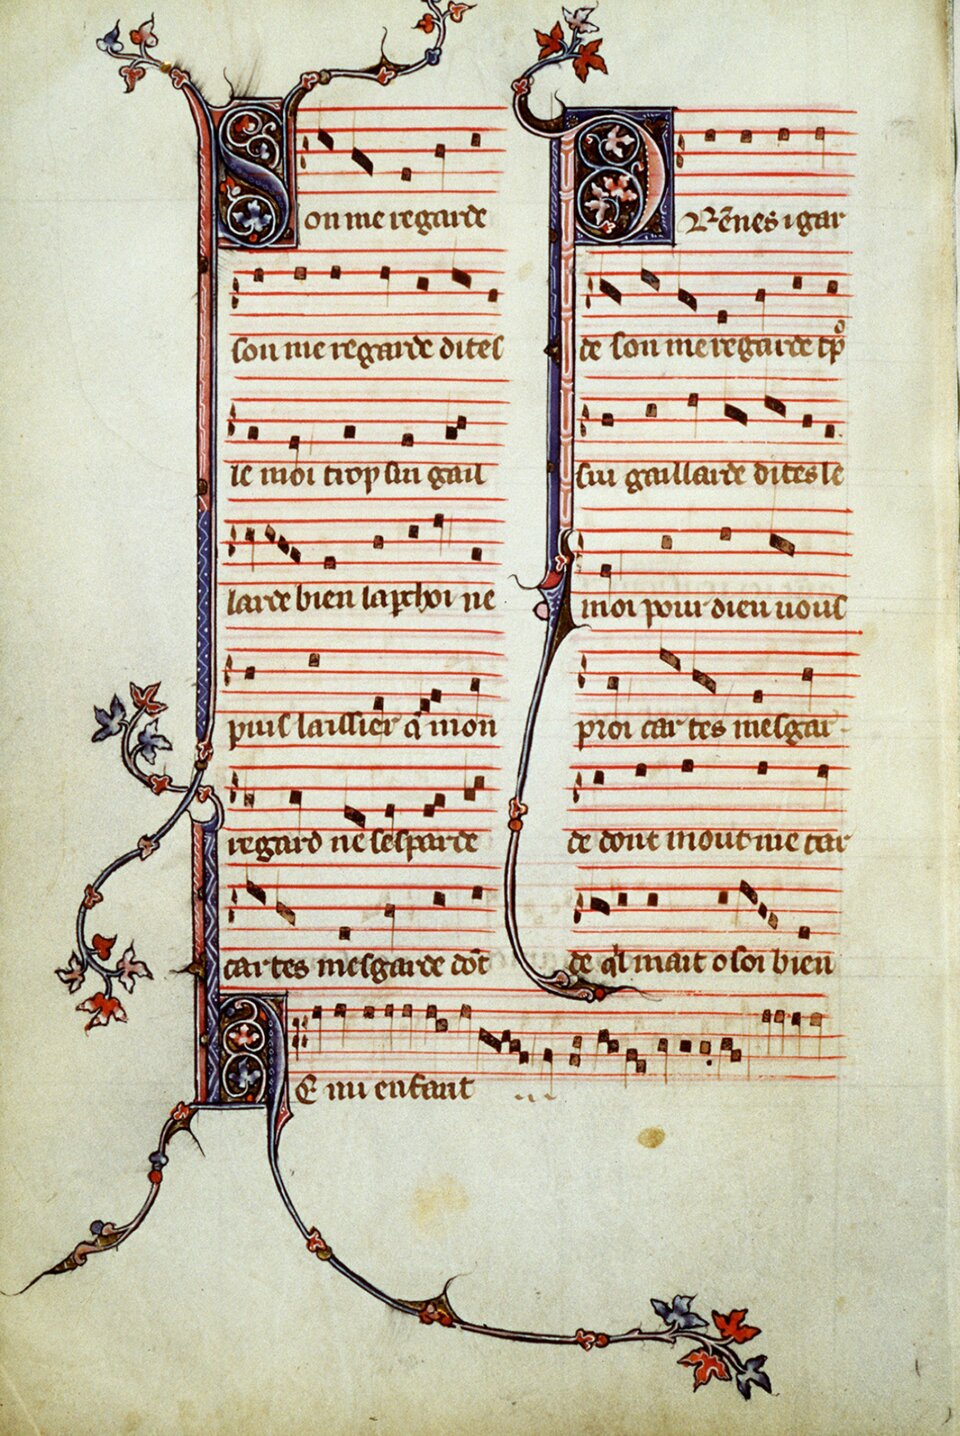 Son me regarde
son me regarde dites
le moi trop sui gail
larde bien laꝑchoi ne
puis laissier q̃ mon
regard ne sesparde
car tes mesgarde dõt
Prẽnes i gar
de son me regarde tͦp
sui gaillarde dites le
moi pour dieu uous
proi car tes mesgar
de dont mout me tar
de ql mait o soi bien
Hе mi enfant